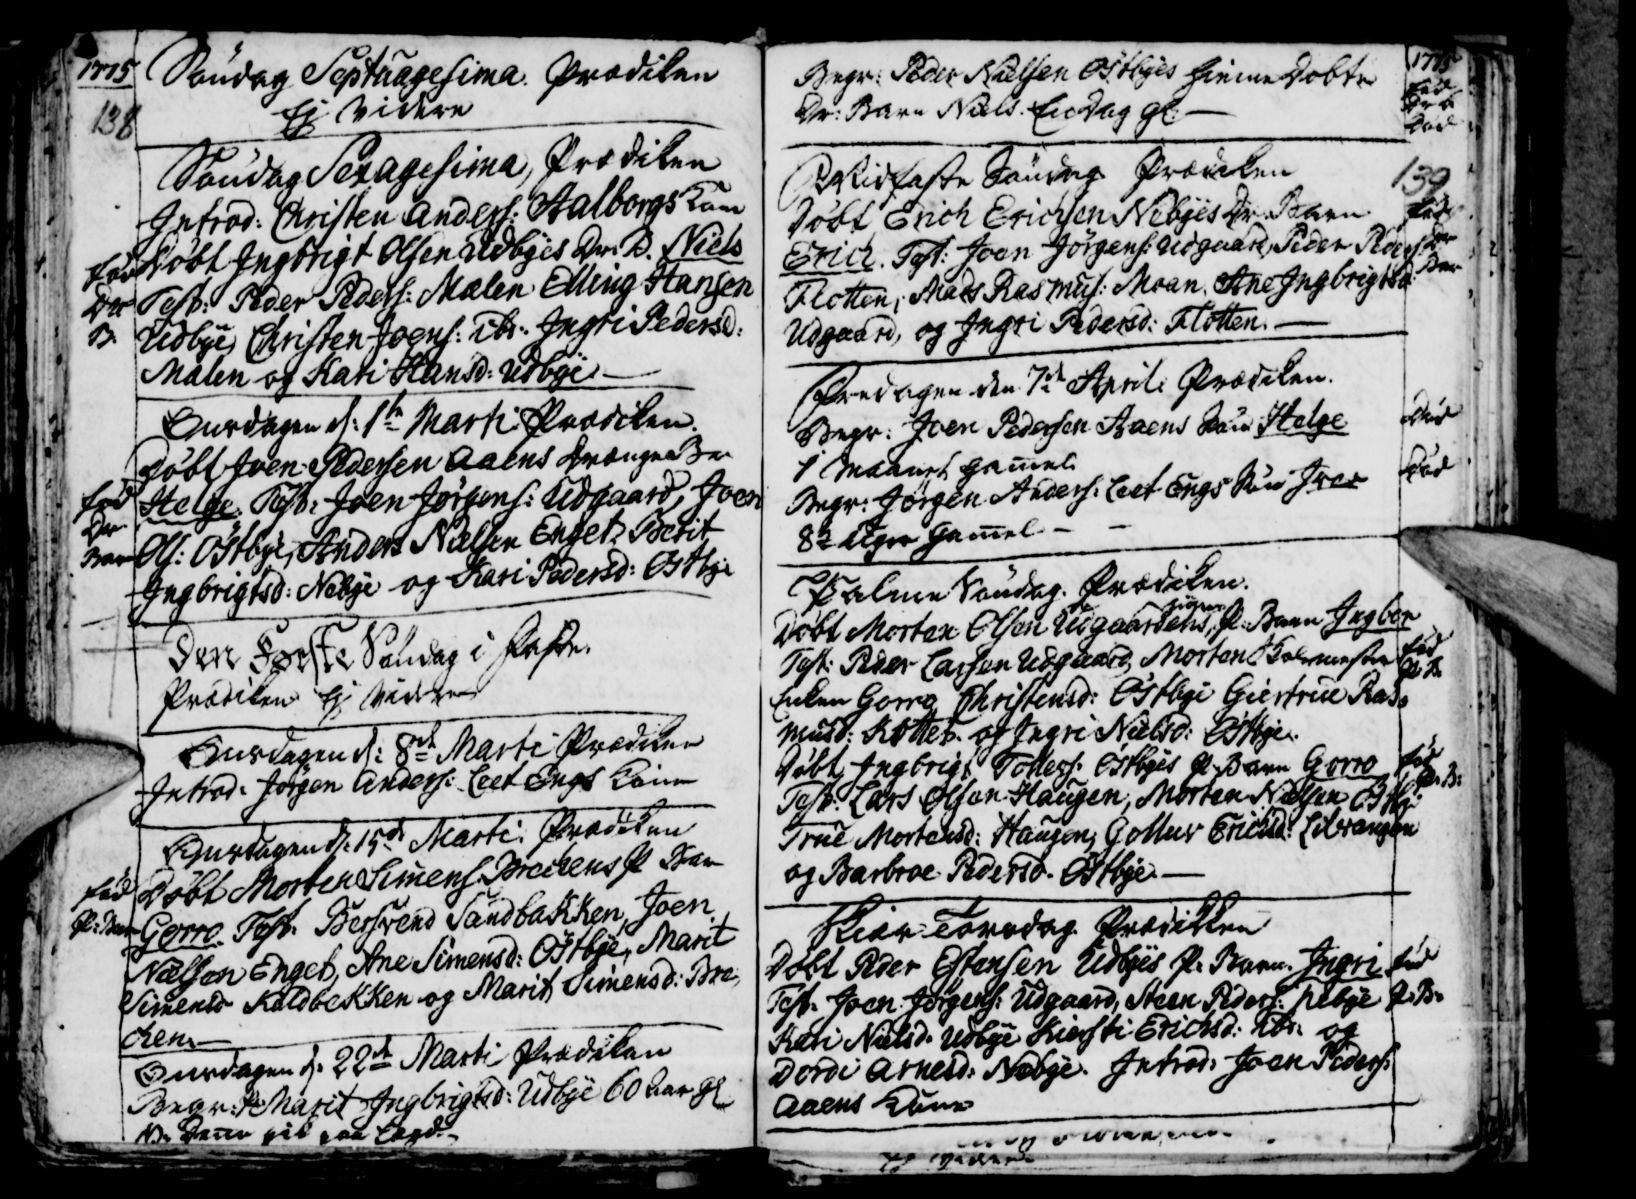 1775
138
Søndag Septuagesima. Prædiken
Ej videre
Søndag Sexagesima, Prædiken
Introd: Christen Anders: Aalborgs Kone
Døbt Ingbrigt Olsen Udbyes Dr: B. Niels
Test: Peder Peders: Mælen Elling Hansen
Udbye, Christen Joens: ibr: Ingri Pedersd:
Mælen og Kari Hansd: Udbye
fød
Dr
B.
Onsdagen d: 1te Marti Prædiken.
Døbt Joen Pedersen Aaens Drænge Ba
Helge. Test: Joen Jørgens: Udgaard, Joen
Ols: Østbye, Anders Nielsen Enget, Berit
Ingbrigtsd: Nebye og Kari Pedersd: Østbye
fød
Dr
Barn
Den Første Søndag i Faste.
Prædiken Ej videre
Onsdagen d: 8de Marti Prædiken
Introd: Jørgen Anders: Leet Engs Kone
Onsdagen d: 15de Marti Prædiken
Døbt Morten Simens: Breckens P Barn
Gorro. Test: Bersvend Sandbakken, Joen
Nielsen Enget, Ane Simensd: Østbye, Marit
Simensd Kaldbekken og Marit Simensd: Bre,
cken
fød
P: Barn
Onsdagen d: 22de Marti Prædiken
Begr: Marit Ingbrigtsd: Udbye 60 Aar gl
Begr: Peder Nielsen Østbyes hieme Døbte
Dr: Barn Niels. En Dag gl.
1775
fød
Dr B
død
139
Midfaste Søndag Prædiken
Døbt Erich Erichsen Nebyes Dr: Barn
Erich. Test: Joen Jørgens: Udgaard, Peder Peders
Flotten, Mads Rasmus: Moan, Ane Ingbrigtsd:
Udgaard, og Ingri Pedersd: Flotten.
fød
Dr
Bar
Fredagen den 7de April: Prædiken.
Begr: Joen Pedersen Aaens Søn Helge
1 Maanet gammel
Begr: Jørgen Anders: Leet Engs Søn Iver
8te Uger gammel
Død
Død
Palme Søndag. Prædiken.
Døbt Morten Olsen Udgaardens P: Barn Ingbor
Test: Peder Larsen Udgaard, Morten Skolemester
Enken Gorro Christensd: Østbye Giertrue Ras,
musd: Kotten og Ingri Nielsd: Østbye.
Døbt Ingbrigt Tollefs: Østbyes P: Barn Gorro
Test: Lars Olsen Haugen, Morten Nielsen Østby
True Mortensd: Haugen, Gollau Erichsd: Lilvangen
og Barbroe Pedersd. Østbye.
fød
P: B.
fød
P: B:
Skiær Torsdag Prædiken
Døbt Peder Estensen Udbyes P: Barn Ingri
Test: Joen Jørgens: Udgaard, Steen Peders: Nebye
Kari Nielsd. Udbye Kiersti Erichsd: ibr: og
Dordi Arnesd: Nebye. Introd: Joen Peders:
Aaens Kone
fød
P: B:
Ej videre